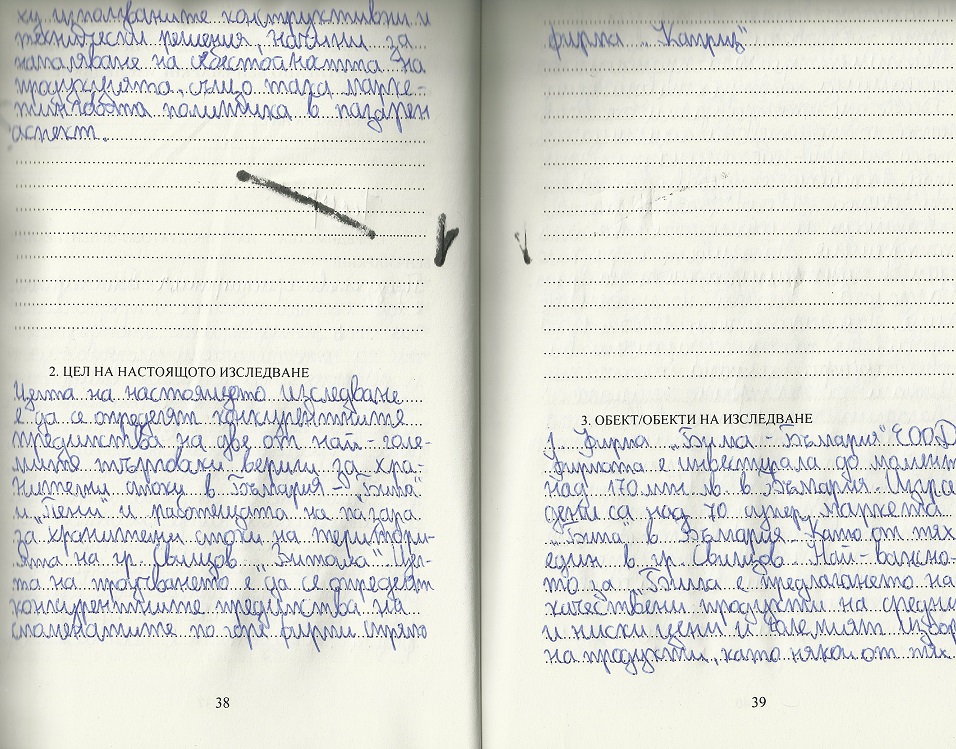 ху използваните конструктивни и
технически решения, начини за
намаляване на себестойността на
продукцията, също така марке-
тинговата политика в пазарен
аспект.
2. ЦЕЛ НА НАСТОЯЩОТО ИЗСЛЕДВАНЕ
Целта на настоящето изследване
е да се определят конкурентните
предимства на две от най-голе-
мите търговски вериги за хра-
нителни стоки в България – "Била"
и "Пени" и работещата на пазара
за хранителни стоки на територи-
ята на гр. Свищов "Биталка". Цел-
та на проучването е да се определят
конкурентните предимства на
споменатите по горе фирми спрямо
38
фирма "Каприз"
3. ОБЕКТ/ОБЕКТИ НА ИЗСЛЕДВАНЕ
1. Фирма "Била – България" ЕООД
фирмата е инвестирала до момент
над 170 млн. лв. в България. Изгра
дени са над 70 супер маркета
"Била" в България. Като от тях
един в гр. Свищов. Най-важно-
то за "Била е предлагането на
качествени продукти на средни
и ниски цени и големият избор
на продукти, като някои от тях
39